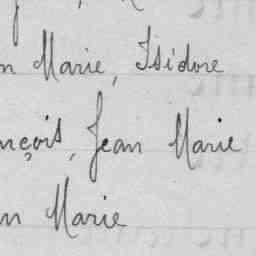 n Marie, Isidore
nçois, Jean Marie
n Marie